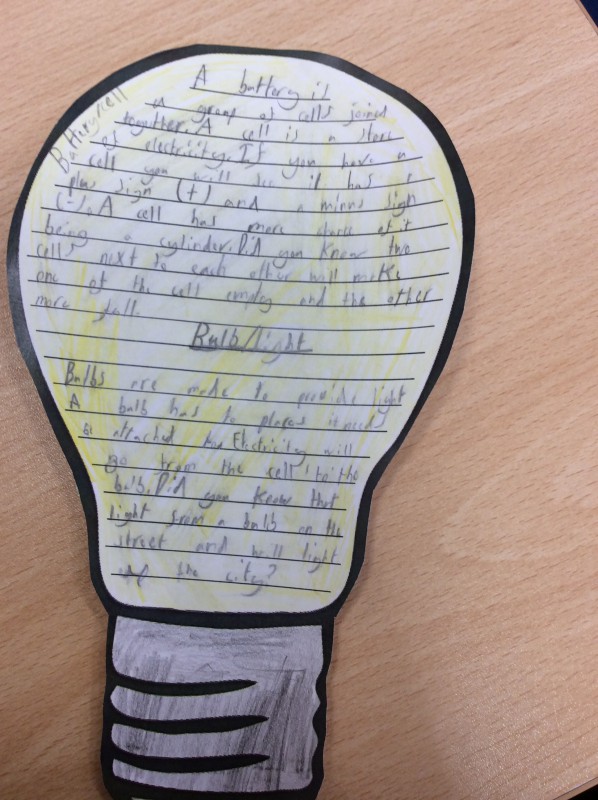 Battery/cell
A battery is
a group of cells joined
together. A cell is a store
of electricity. If you have a
cell you will see it has a
plus sign (+) and a minus sign
(-). A cell has more store of it
being a cylinder. Did you know two
cells next to each other will make
one of the cell empty and the other
more full.
Bulb/light
Bulbs are made to provide light
A bulb has to places it needs
attached Electricity will
Go from the cell to the
bulb. Did you know that
light from a bulb on the
street and will light
the city?